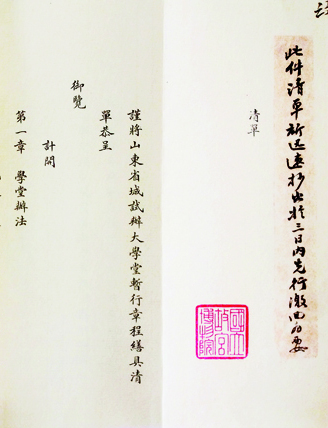 此件清單新迅速抄出於三日內先行澈回為要
清單
謹將山東省城試辦大學堂暫行章程繕具清
單恭呈
御覽
計開
第一章　學堂辦法
國立故宮博物院